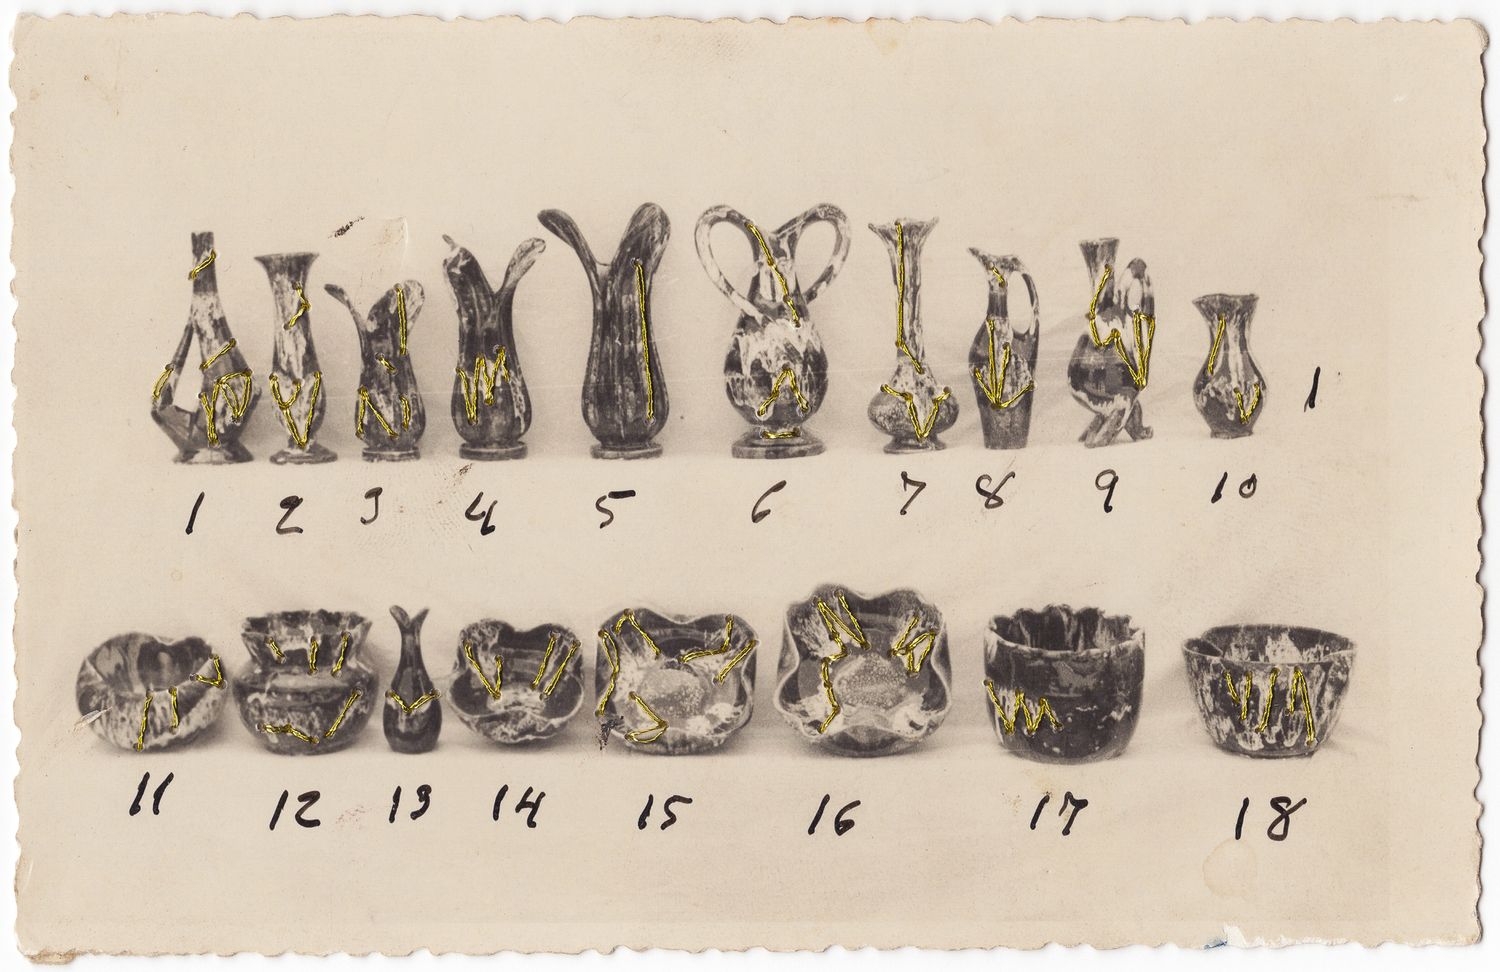 1
1 2 3 4 5 6 7 8 9 10
11 12 13 14 15 16 17 18